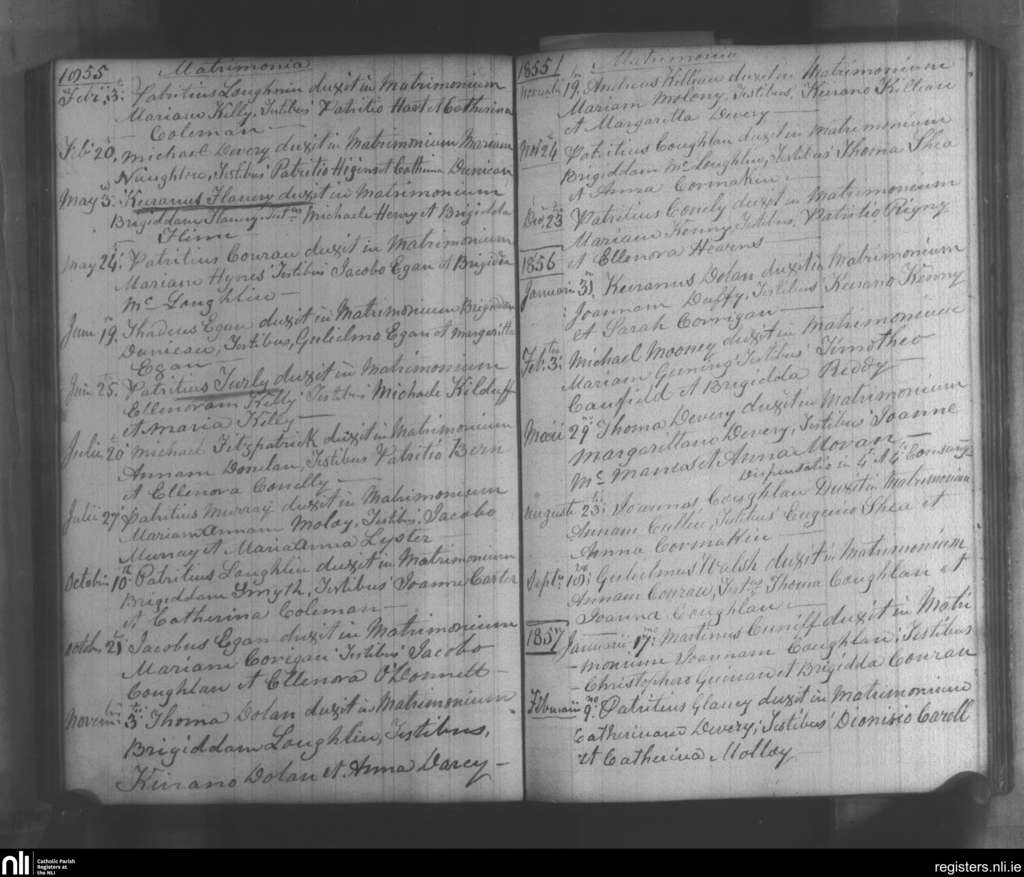 1855 Matrimonia
Feb: 3: Patritius Loughnin duxit in Matrimonium
Mariam Kelly, Testibus Patritio Hart et Catherina
Coleman —
Feb: 20, Michael Devery duxit in Matrimonium Mariam
Naughton, Testibus Patritio Higins et Catherina Dunican
May 3: Kieranus Flanery duxit in Matrimonium
Brigiddam Flanery Michaele Henry et Brigidda
May 24: Patritius Conran duxit in Matrimonium
Mariam Hynes Testibus Jacobo Egan et Brigidda
Mc Loughlin —
Juni 19, Thadeus Egan duxit in Matrimonium Brigiddam
Dunican, Testibus, Gulielmo Egan et Margaritta
Egan —
Juni 25: Patritius Turly duxit in Matrimonium
Ellenoram Kelly Testibus Michaele Kilduff
et Maria Kelly —
Julii 20 Michael Fitzpatrick duxit in Matrimonium
Annam Donelan, Testibus Patritio Bern
et Ellenora Conelly —
Julii 27 Patritius Murray duxit in Matrimonium
Mariam Annam Moloy, Testibus Jacobo
Murray et Maria Anna Lyster
Octobris 10th Patritius Loughlin duxit in Matrimonium
Brigiddam Smyth, Testibus Joanne Carter
et Catherina Coleman —
Octobris 21 Jacobus Egan duxit in Matrimonium
Mariam Corigan Testibus Jacobo
Coughlan et Ellenora O'Donnell —
3: Thoma Dolan duxit in Matrimonium
Brigiddam Loughlin, Testibus,
Kierano Dolan et Anna Darcy —
1855 Matrimonia
19, Andreus Killian duxit in Matrimonium
Mariam Molony, Testibus, Keirano Killian
et Margaritta Devery —
Nov 24 Patritius Coughlan duxit in Matrimonium
Brigiddam Mc Loughlin, Testibus Thoma Shea
et Anna Cormakin —
Dec 23 Patritius Conely duxit in Matrimonium
Mariam Kenny Testibus, Patritio Rigny
et Ellenora Hearns —
1856
Januarii 31, Keiranus Dolan duxit in Matrimonium
Joannam Duffy, Testibus Keirano Kenny
et Sarah Corrigan —
Feb: 3: Michael Mooney duxit in Matrimonium
Mariam Guning Testibus Timotheo
Caufield et Brigidda Reddy —
29 Thoma Devery duxit in Matrimonium
Margarittam Devery, Testibus Joanne
Mc Manus et Anna Moran —
Dispensatio in 4 et 4 Consang
Augusti 23: Joannes Coughlan Duxit in Matrimonium
Annam Cullin, Testibus Eugenio Shea et
Anna Cormakin —
Septr 18: Gulielmus Walsh duxit in Matrimonium
Annam Conran, Thoma Coughlan et
Joanna Coughlan —
1857
Januarii 17: Martinus Cuniff duxit in Matri
- monium Joannam Coughlan; Testibus
- Christophero Guinan et Brigidda Conran
Februarii 9: Patritius Glaney duxit in Matrimonium
Catherinam Devery; Testibus Dionisio Caroll
et Catherina Molloy —
nli Catholic Parish
Registers at
the NLI
registers.nli.ie